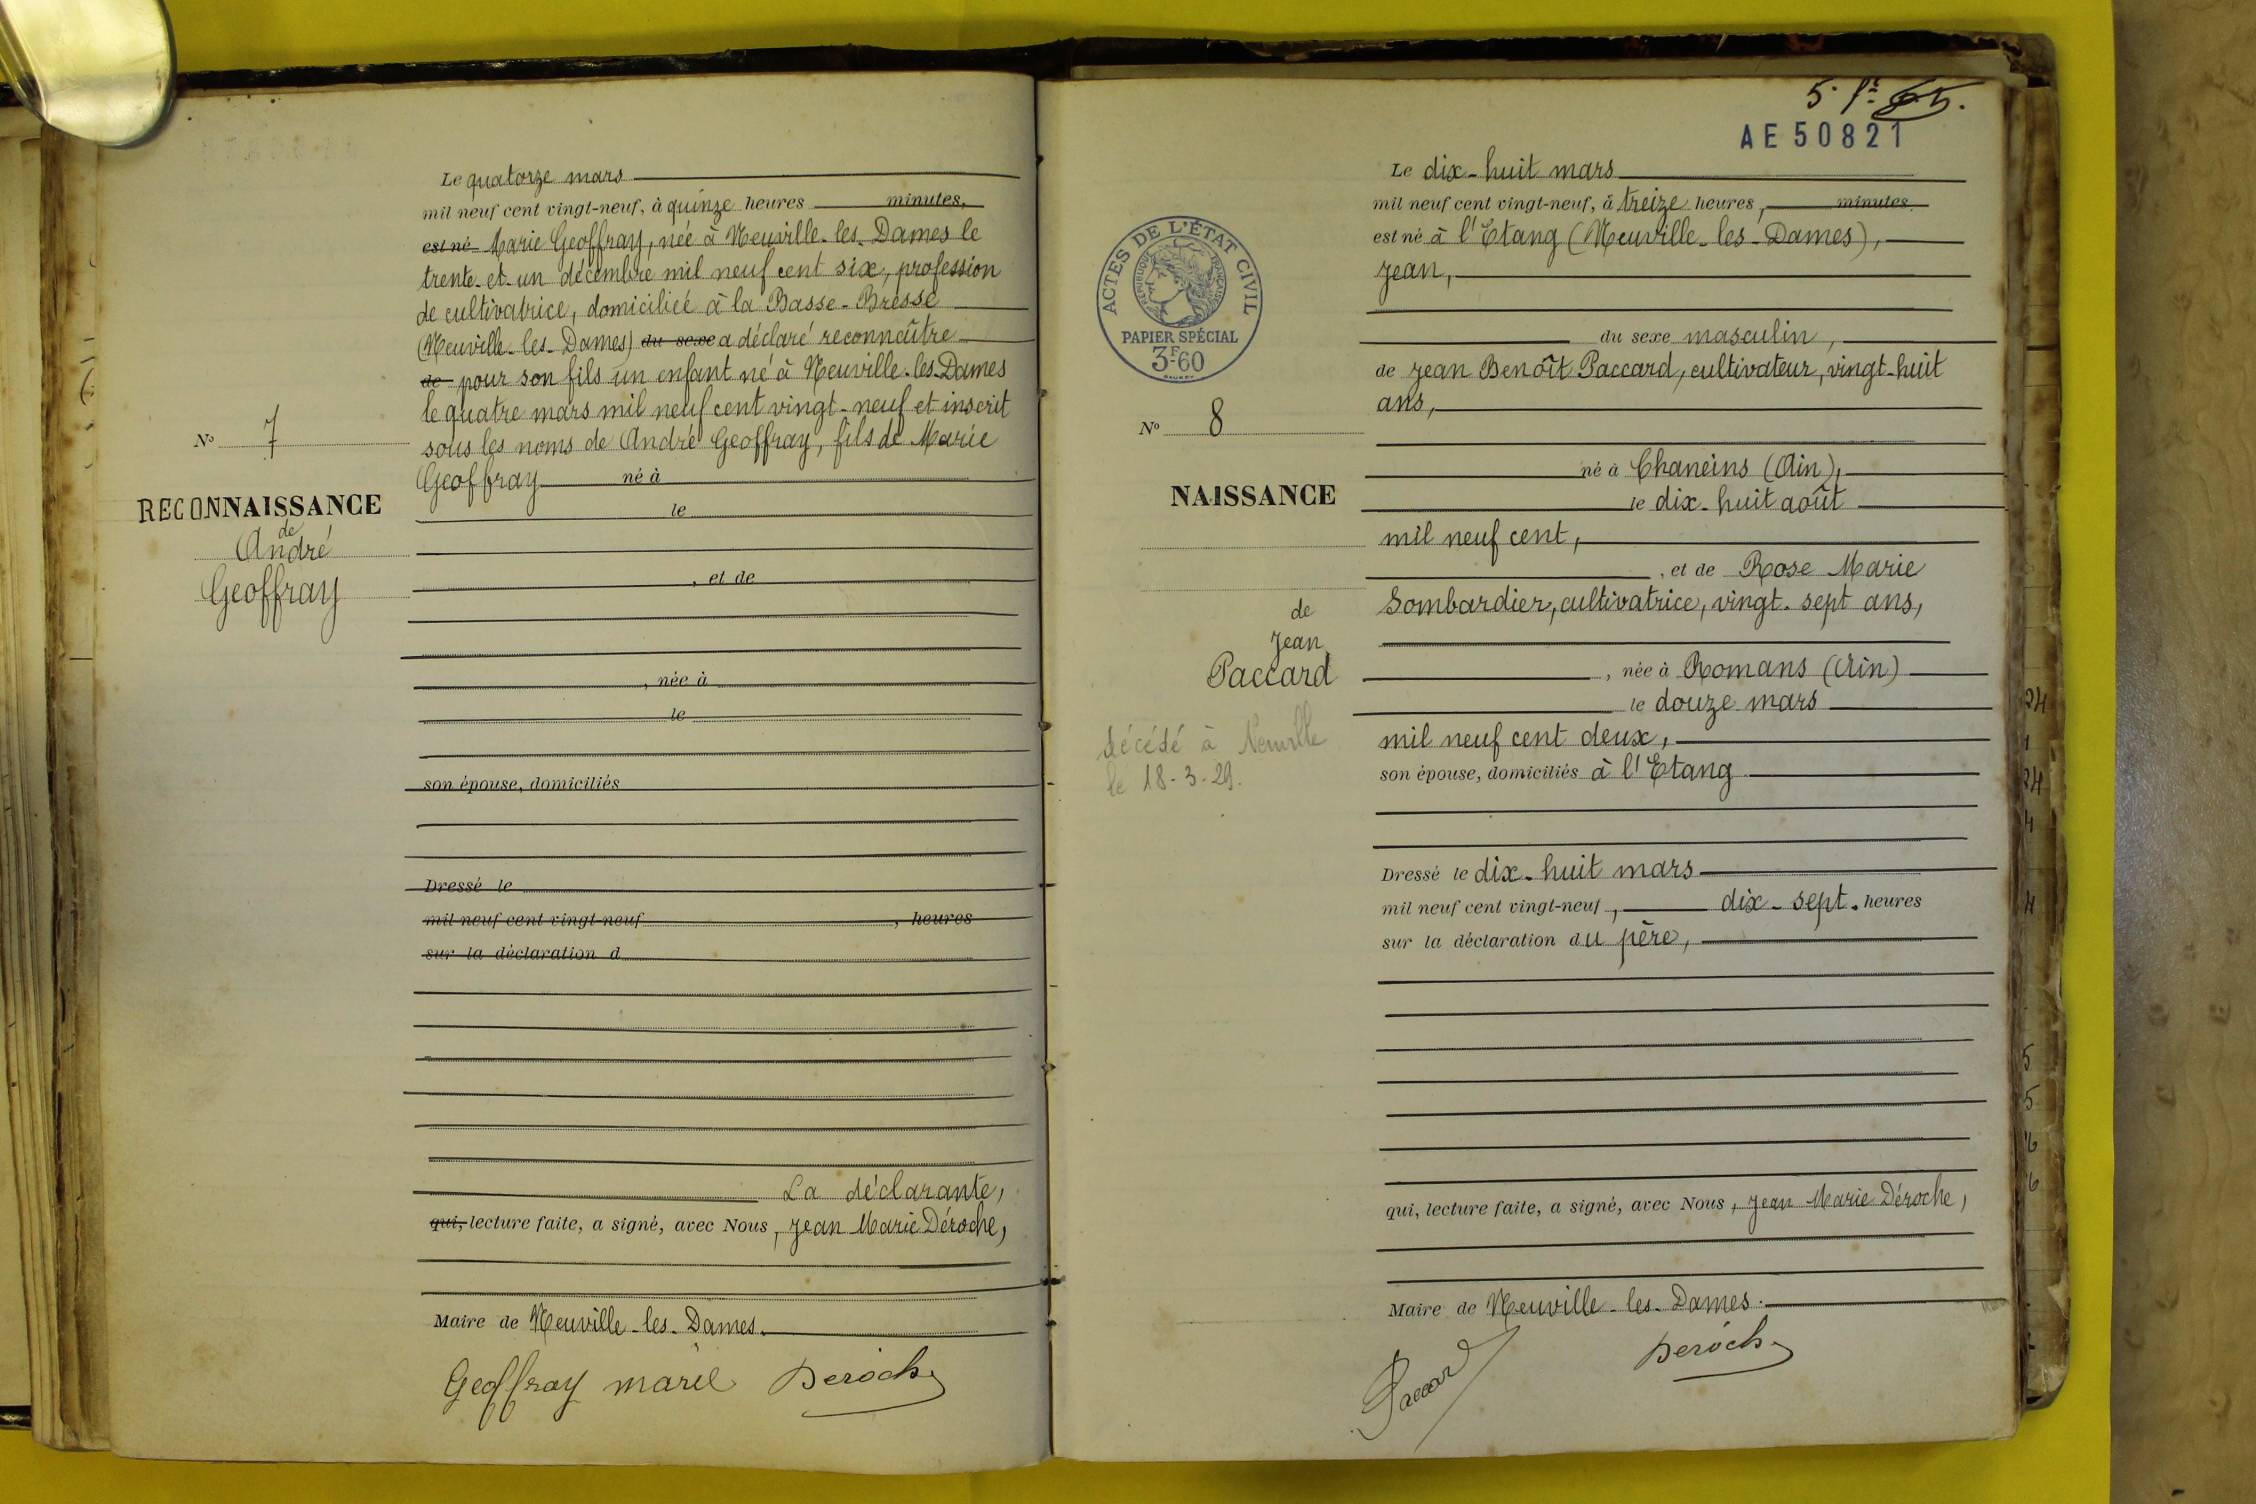 Le quatorze mars
mil neuf cent vingt-neuf, à quinze heures minutes,
est né Marie Geoffray, née à Neuville-les-Dames le
trente-et-un décembre mil neuf cent six, profession
de cultivatrice, domiciliée à la Basse-Bresse
(Neuville-les-Dames) du sexe a déclaré reconnaître
de pour son fils un enfant né à Neuville-les-Dames
le quatre mars mil neuf cent vingt-neuf et inscrit
sous les noms de André Geoffray, fils de Marie
Geoffray né à
le
, et de
, née à
le
son épouse, domiciliés
Dressé le
mil neuf cent vingt-neuf , heures
sur la déclaration d
La déclarante,
qui, lecture faite, a signé, avec Nous, Jean Marie Déroche,
Maire de Neuville-les-Dames.
Geoffray marie Deroche
No 7
RECONNAISSANCE
de
André
Geoffray
5.
AE 50821
ACTES DE L'ÉTAT CIVIL
RÉPUBLIQUE FRANÇAISE
PAPIER SPÉCIAL
3F60
No 8
NAISSANCE
de
Jean
Paccard
décédé à Neuville
le 18-3-29.
Le dix-huit mars
mil neuf cent vingt-neuf, à treize heures, minutes
est né à l'Etang (Neuville-les-Dames),
Jean,
du sexe masculin,
de Jean Benoît Paccard, cultivateur, vingt-huit
ans,
né à Chaneins (Ain),
le dix-huit août
mil neuf cent,
, et de Rose Marie
Sombardier, cultivatrice, vingt-sept ans,
, née à Romans (Ain)
le douze mars
mil neuf cent deux,
son épouse, domiciliés à l'Etang
Dressé le dix-huit mars
mil neuf cent vingt-neuf, dix-sept heures
sur la déclaration du père,
qui, lecture faite, a signé, avec Nous, Jean Marie Déroche,
Maire de Neuville-les-Dames.
Paccard Deroche
24
1
24
4
4
5
5
6
6